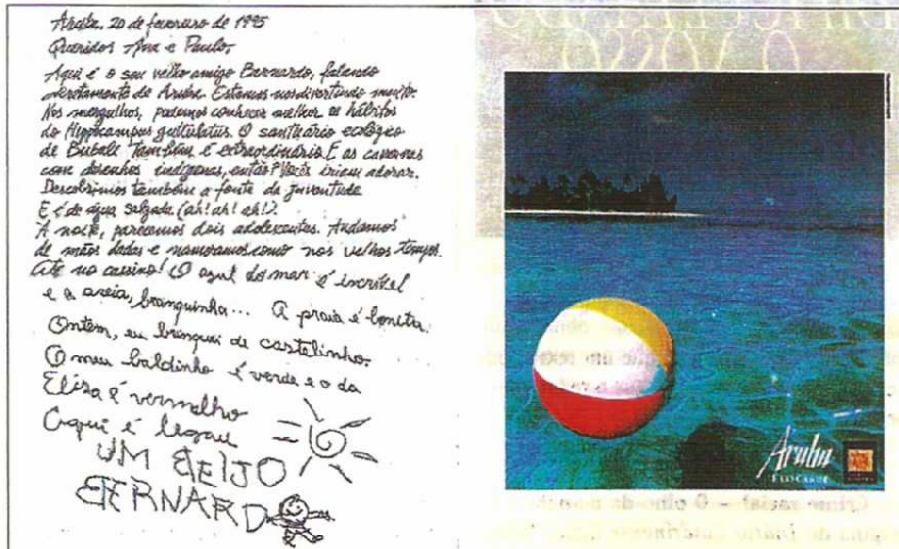 Aruba, 20 de fevereiro de 1995
Queridos Ana e Paulo,
Aqui é o seu velho amigo Bernardo, falando
diretamente de Aruba. Estamos nos divertindo muito.
Nos mergulhos, pudemos conhecer melhor os hábitos
do Hippocampus guttulatus. O santuário ecológico
de Bubali também é extraordinário. E as cavernas
com desenhos indígenas, então? Vocês iriam adorar.
Descobrimos também a fonte da juventude.
E é de água salgada (ah! ah! ah!).
À noite, parecemos dois adolescentes. Andamos
de mãos dadas e namoramos como nos velhos tempos.
Até no cassino! O azul do mar é incrível
e a areia, branquinha... A praia é bonita.
Ontem, eu brinquei de castelinho.
O meu baldinho é verde e o da
Eliza é vermelho
Aqui é legau
UM BEIJO
BERNARDO
Aruba
Crime racial – O olho da